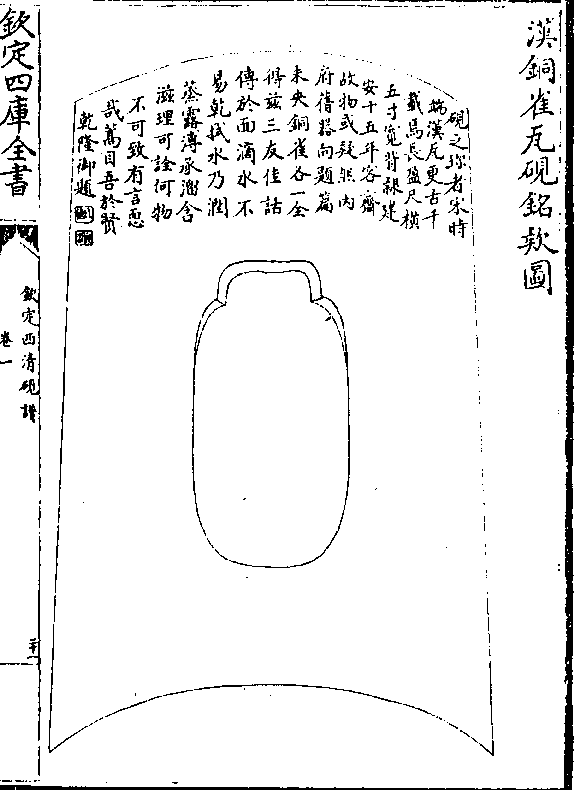 漢銅雀瓦硯銘款圖
硯之珍者宋時
端漢瓦更古千
載焉長盈尺橫
五寸寬背隸建
安十五年容齋
故物或疑然內
府舊器向題篇
未央銅雀各一全
得兹三友佳話
傳於面滴水不
易乾拭水乃潤
蒸露溥承含
滋理可詮何物
不可致有言恧
哉萬目吾於賢
乾隆御題
欽定四庫全書
欽定西清硯譜
卷一